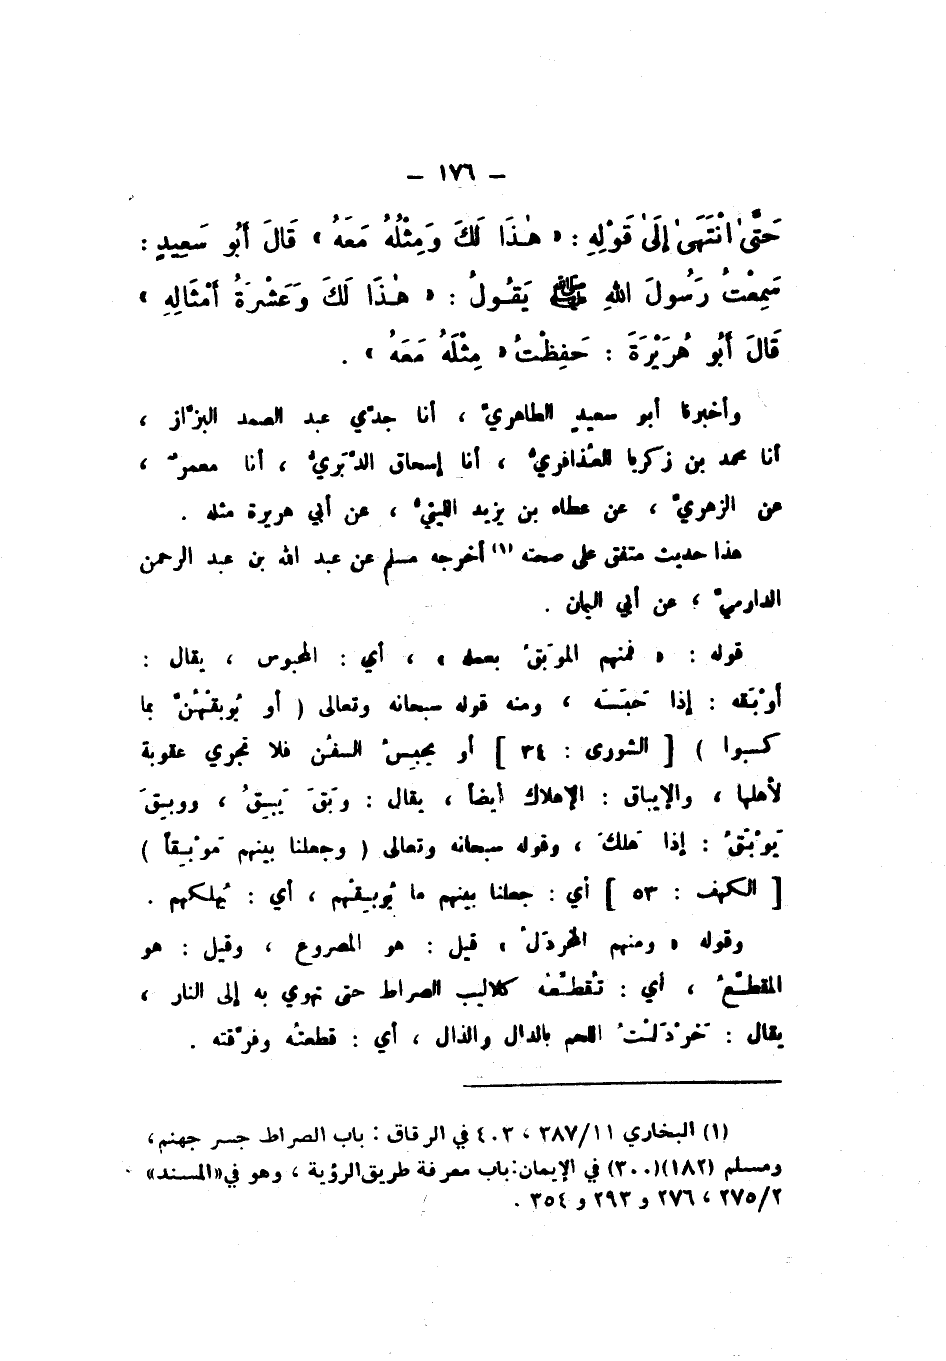 – ١٧٦ –
حَتَّىٰ انْتَهَىٰ إِلَىٰ قَوْلِهِ : « هٰذَا لَكَ وَمِثْلُهُ مَعَهُ » قَالَ أَبُو سَعِيدٍ :
سَمِعْتُ رَسُولَ اللهِ ﷺ يَقُولُ : « هٰذَا لَكَ وَعَشْرَةُ أَمْثَالِهِ »
قَالَ أَبُو هُرَيْرَةَ : حَفِظْتُ « مِثْلَهُ مَعَهُ » .
وأخبرنا أبو سعيدٍ الطاهريّ ، أنا جدّي عبد الصمد البزّاز ،
أنا محمد بن زكريا العُذافريّ ، أنا إسحاق الدَّبَريّ ، أنا معمرٌ ،
عن الزهريّ ، عن عطاء بن يزيد الليثيّ ، عن أبي هريرة مثله .
هذا حديث متفق على صحته (١) أخرجه مسلم عن عبد الله بن عبد الرحمن
الدارميّ ، عن أبي اليمان .
قوله : « فمنهم الموبَقُ بعمله » ، أي : المحبوس ، يقال :
أوْبَقه : إذا حَبَسَه ، ومنه قوله سبحانه وتعالى ( أو يُوبقْهُنّ بما
كسبوا ) [ الشورى : ٣٤ ] أو يحبِسُ السفُن فلا تجري عقوبة
لأهلها ، والإيباق : الإهلاك أيضاً ، يقال : وبَقَ يَبِيقُ ، ووبِقَ
يَوْبَقُ : إذا هَلكَ ، وقوله سبحانه وتعالى ( وجعلنا بينهم مَوْبِقاً )
[ الكهف : ٥٣ ] أي : جعلنا بينهم ما يُوبِقهُم ، أي : يُهلكهم .
وقوله « ومنهم المخردَلُ » قيل : هو المصروع ، وقيل : هو
المقطَّعُ ، أي : تُقطِّعُه كلاليب الصراط حتى تهوي به إلى النار ،
يقال : خَرْدَلْتُ اللحم بالدال والذال ، أي : قطعتُه وفرّقته .
(١) البخاري ٣٨٧/١١ ، ٤٠٣ في الرقاق : باب الصراط جسر جهنم ،
ومسلم (١٨٢)(٣٠٠) في الإيمان : باب معرفة طريق الرؤية ، وهو في «المسند»
٢٧٥/٢ ، ٢٧٦ و ٢٩٣ و ٣٥٤ .